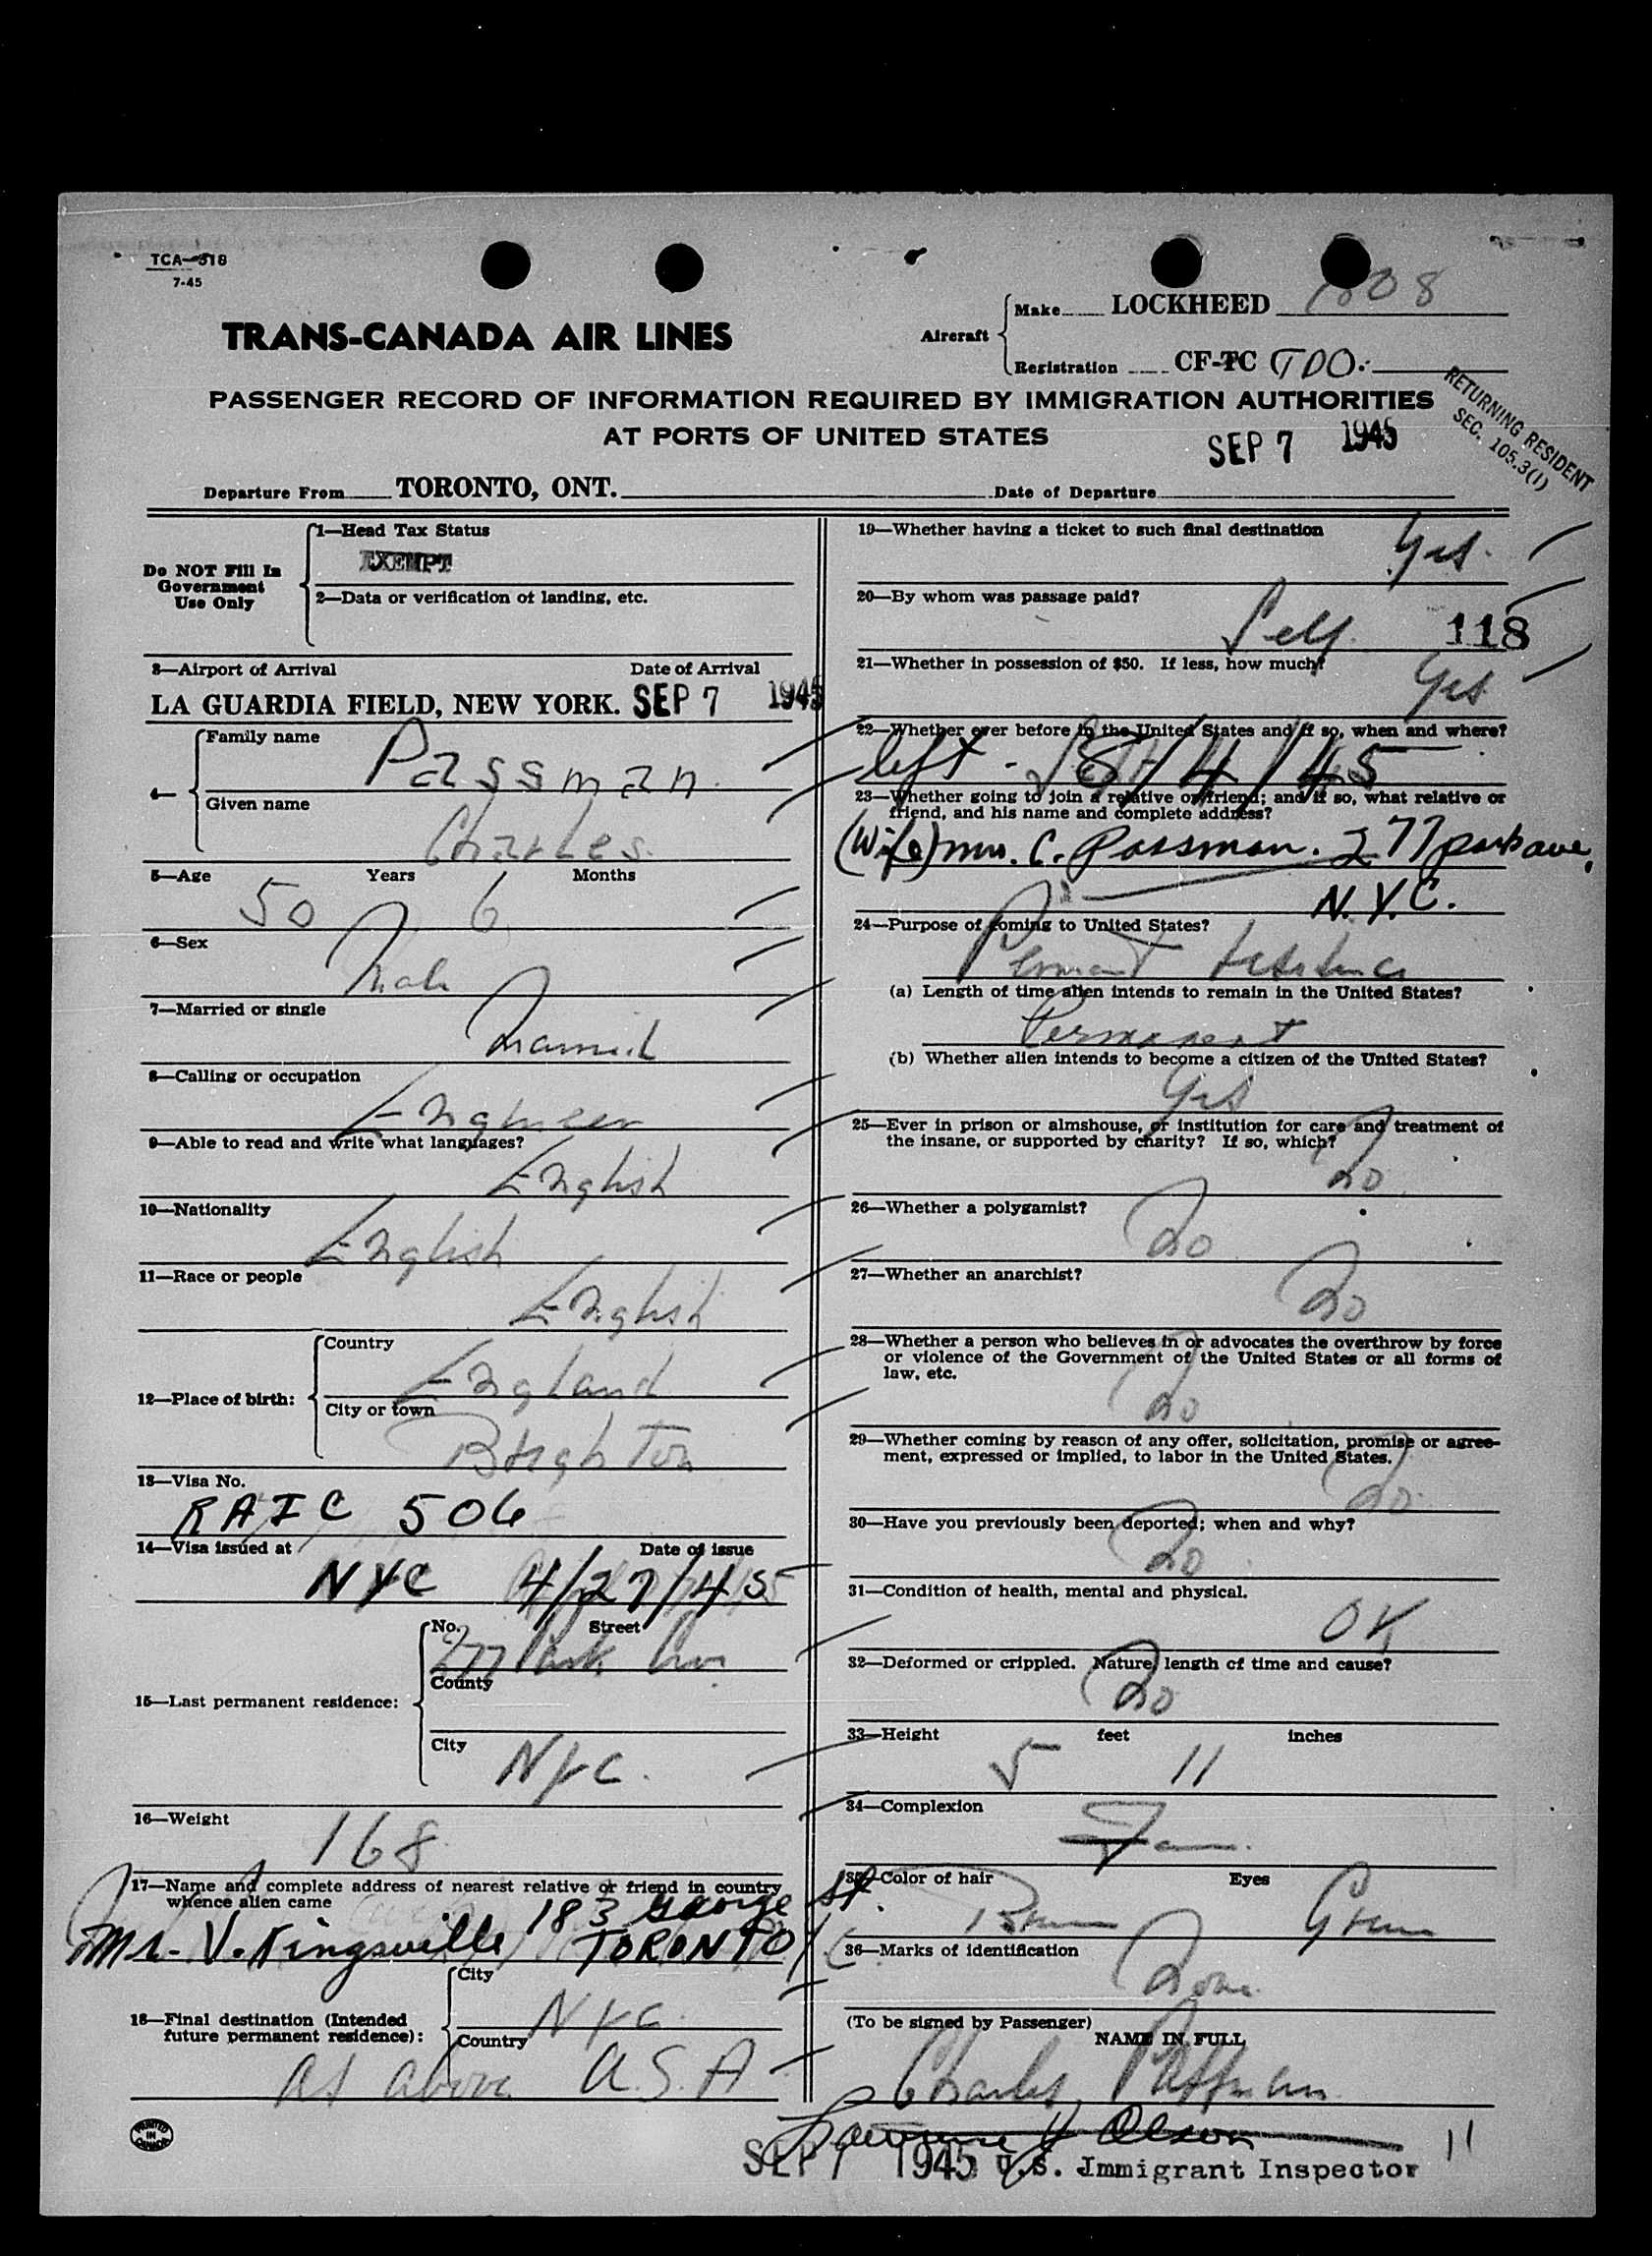 TCA-318
7-45
TRANS-CANADA AIR LINES
Aircraft
Make LOCKHEED 1808
Registration CF-TC TDO.
PASSENGER RECORD OF INFORMATION REQUIRED BY IMMIGRATION AUTHORITIES
AT PORTS OF UNITED STATES
SEP 7 1945
RETURNING RESIDENT
SEC. 105.3(1)
Departure From TORONTO, ONT. Date of Departure
Do NOT Fill In
Government
Use Only
1—Head Tax Status
EXEMPT
2—Data or verification of landing, etc.
3—Airport of Arrival Date of Arrival
LA GUARDIA FIELD, NEW YORK. SEP 7 1945
4—
Family name
Passman
Given name
Charles
5—Age Years Months
50 6
6—Sex
Male
7—Married or single
Married
8—Calling or occupation
Engineer
9—Able to read and write what languages?
English
10—Nationality
English
11—Race or people
English
12—Place of birth:
Country
England
City or town
Brighton
13—Visa No.
RAIC 506
14—Visa issued at Date of issue
NYC 4/27/45
15—Last permanent residence:
No. Street
277 Park Ave
County
City
NYC.
16—Weight
168
17—Name and complete address of nearest relative or friend in country
whence alien came
183 George St
Mr. V. Kingsville TORONTO
18—Final destination (Intended
future permanent residence):
City
NYC.
Country
as above U.S.A
19—Whether having a ticket to such final destination
Yes.
20—By whom was passage paid?
Self. 118
21—Whether in possession of $50. If less, how much?
Yes
22—Whether ever before in the United States and if so, when and where?
left - 8/4/45
23—Whether going to join a relative or friend; and if so, what relative or
friend, and his name and complete address?
(Wife) Mrs. C. Passman. 277 park ave,
N.Y.C.
24—Purpose of coming to United States?
Permanent residence
(a) Length of time alien intends to remain in the United States?
Permanent
(b) Whether alien intends to become a citizen of the United States?
Yes
25—Ever in prison or almshouse, or institution for care and treatment of
the insane, or supported by charity? If so, which?
No
26—Whether a polygamist?
No
27—Whether an anarchist?
No
28—Whether a person who believes in or advocates the overthrow by force
or violence of the Government of the United States or all forms of
law, etc.
No
29—Whether coming by reason of any offer, solicitation, promise or agree-
ment, expressed or implied, to labor in the United States.
No
30—Have you previously been deported; when and why?
No
31—Condition of health, mental and physical.
OK
32—Deformed or crippled. Nature, length of time and cause?
No
33—Height feet inches
5 11
34—Complexion
Fair
35—Color of hair Eyes
Brown Green
36—Marks of identification
None
(To be signed by Passenger)
NAME IN FULL
Charles Passman
Lawrence H Olson
SEP 7 1945 U.S. Immigrant Inspector
11
PRINTED
IN
CANADA